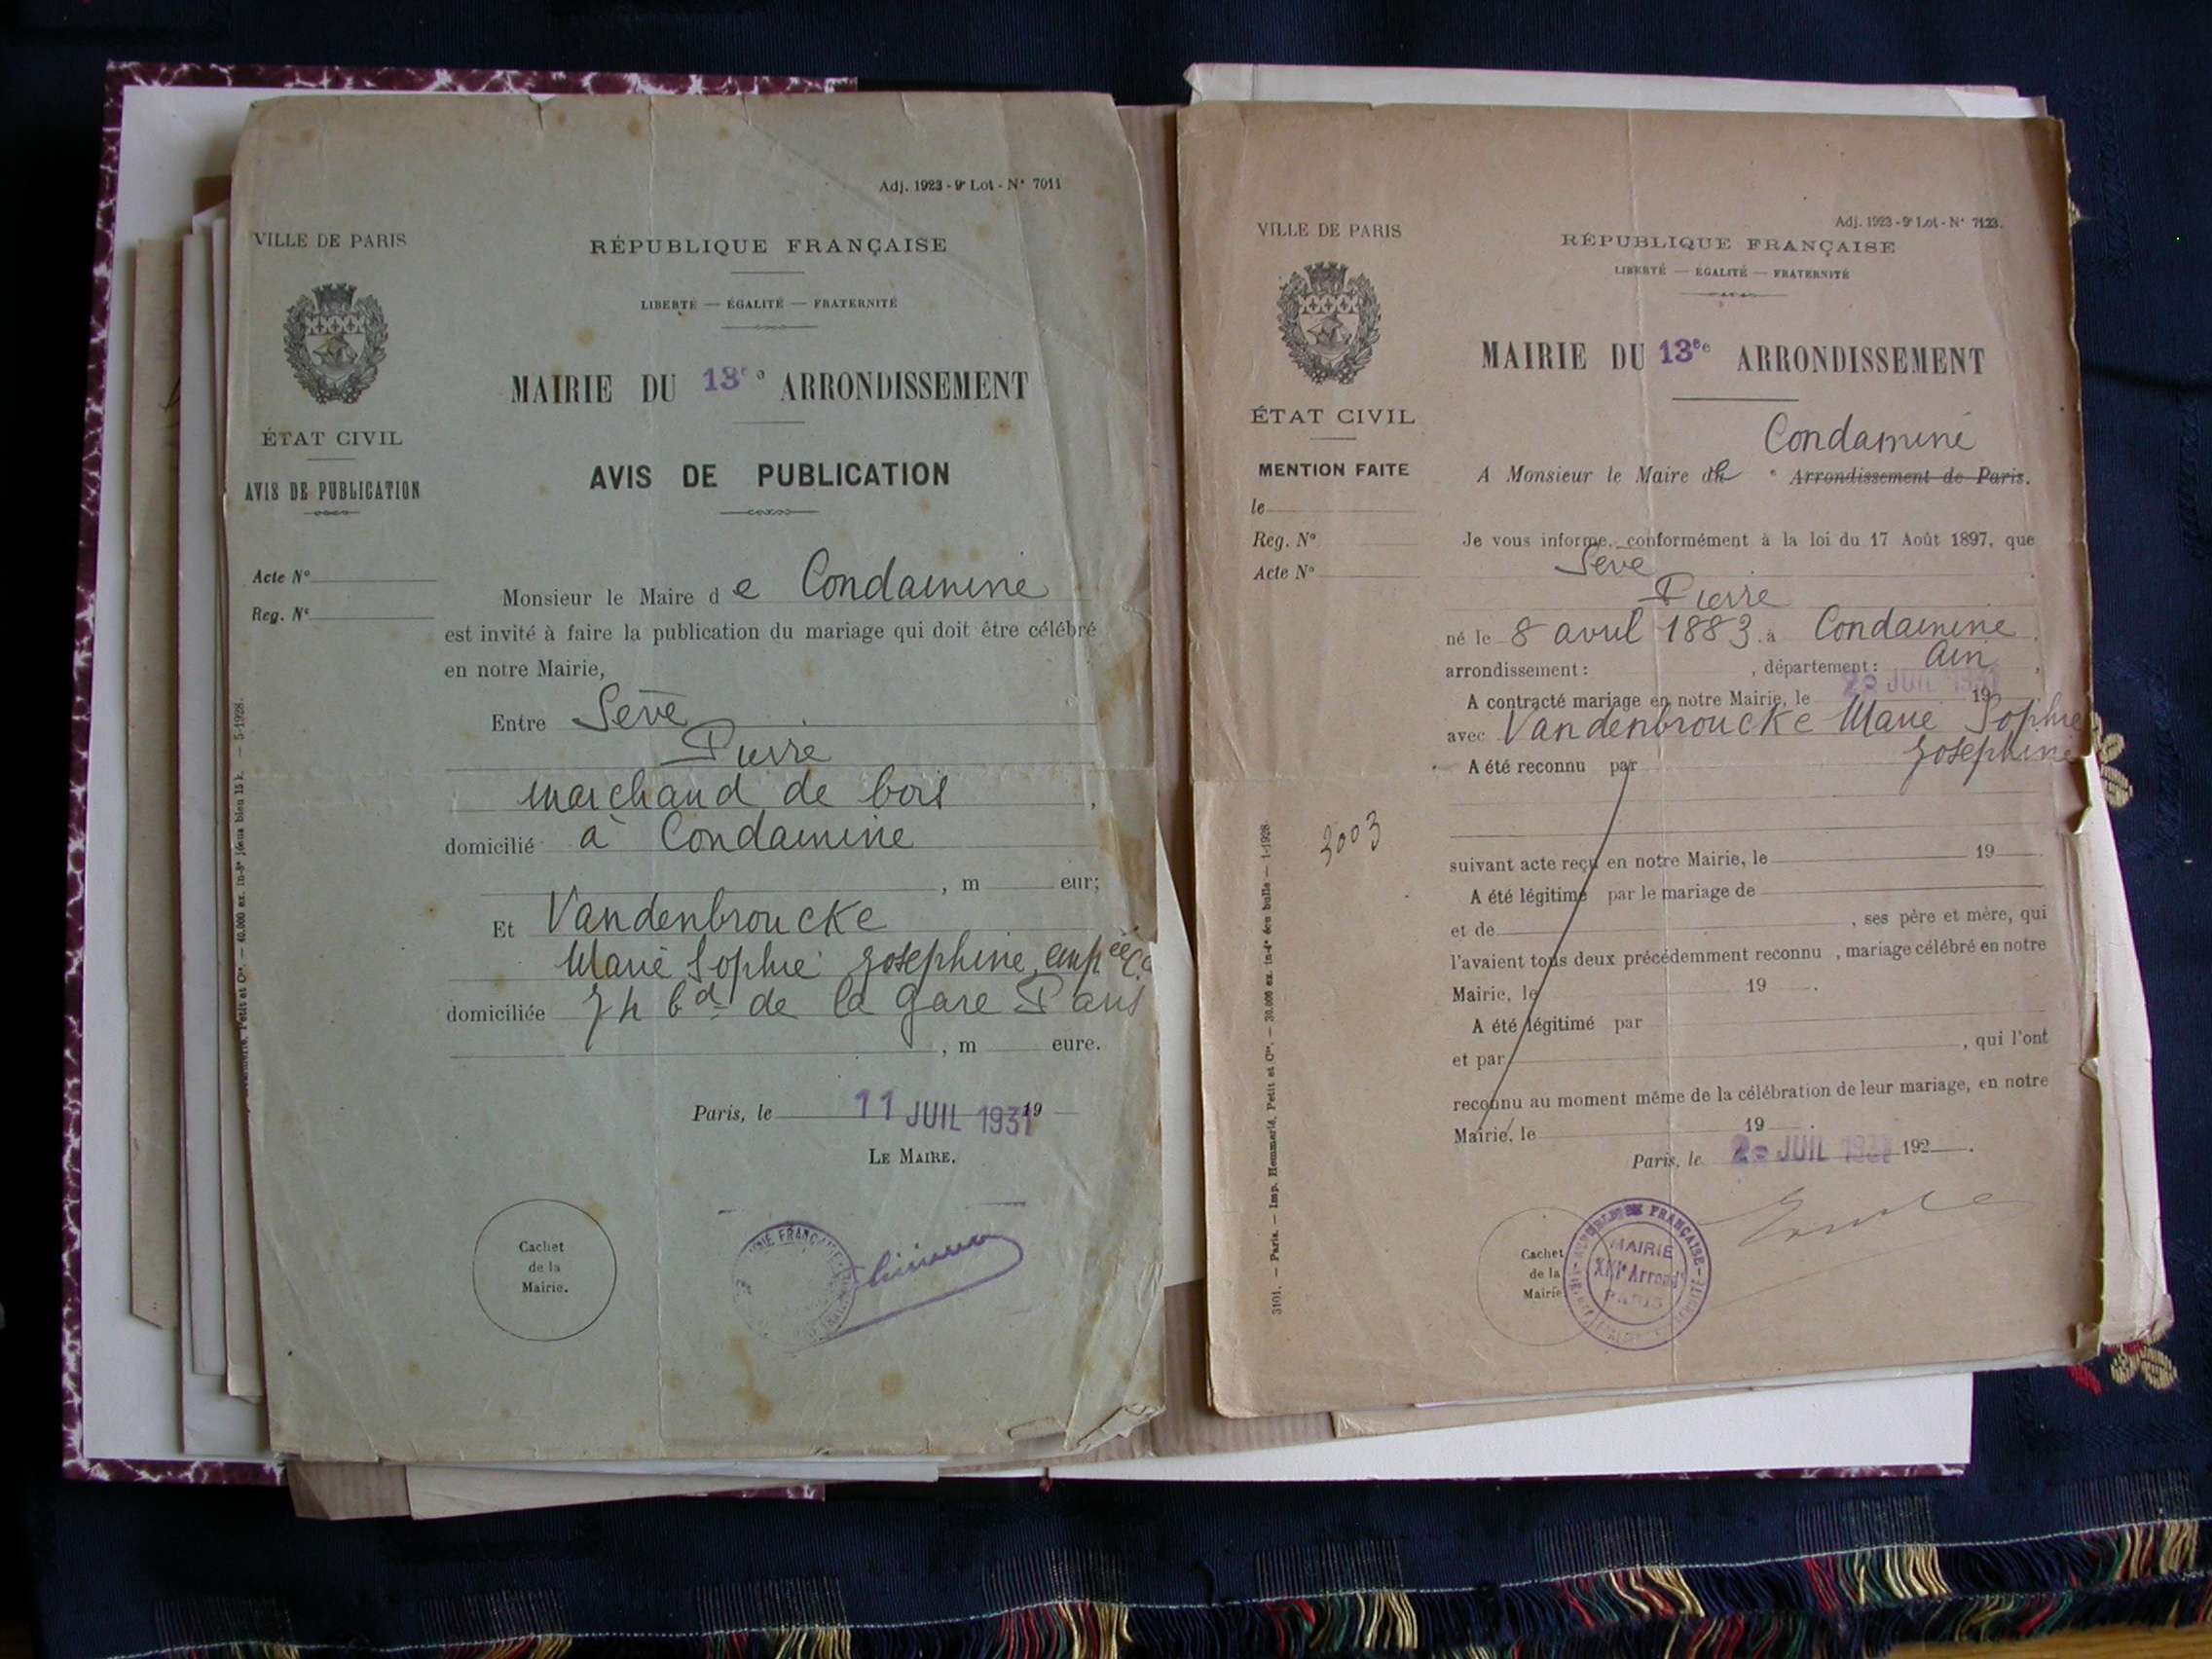 Adj. 1923 - 9e Lot - N° 7011
VILLE DE PARIS
RÉPUBLIQUE FRANÇAISE
LIBERTÉ — ÉGALITÉ — FRATERNITÉ
MAIRIE DU 13e ARRONDISSEMENT
ÉTAT CIVIL
AVIS DE PUBLICATION
AVIS DE PUBLICATION
Acte N°
Reg. N°
Monsieur le Maire de Condamine
est invité à faire la publication du mariage qui doit être célébré
en notre Mairie,
Entre Sève
Pierre
marchand de bois,
domicilié à Condamine
, m eur;
Et Vandenbroucke
Marie Sophie Josephine, empée
domiciliée 74 bd de la Gare Paris
, m eure.
Paris, le 11 JUIL 1931 19
LE MAIRE,
Cachet
de la
Mairie.
Petit et Cie. — 40.000 ex. in-8° jésus bleu 15 k. — 5-1928.
Adj. 1923 - 9e Lot - N° 7123.
VILLE DE PARIS
RÉPUBLIQUE FRANÇAISE
LIBERTÉ — ÉGALITÉ — FRATERNITÉ
MAIRIE DU 13e ARRONDISSEMENT
ÉTAT CIVIL
Condamine
MENTION FAITE
A Monsieur le Maire de e Arrondissement de Paris.
le
Reg. N°
Je vous informe, conformément à la loi du 17 Août 1897, que
Sève
Acte N°
Pierre
né le 8 avril 1883 à Condamine,
arrondissement: , département: Ain,
A contracté mariage en notre Mairie, le JUIL 19
avec Vandenbroucke Marie Sophie
Josephine
A été reconnu par
3003
suivant acte reçu en notre Mairie, le 19
A été légitimé par le mariage de
et de , ses père et mère, qui
l'avaient tous deux précédemment reconnu , mariage célébré en notre
Mairie, le 19 .
A été légitimé par
et par , qui l'ont
reconnu au moment même de la célébration de leur mariage, en notre
Mairie, le 19 .
Paris, le JUIL 192 .
Cachet
de la
Mairie
RÉPUBLIQUE FRANÇAISE
MAIRIE
XIIIe Arrondt
PARIS
3101. — Paris. — Imp. Hemmerlé, Petit et Cie. — 30.000 ex. in-4° écu bulle — 1-1928.